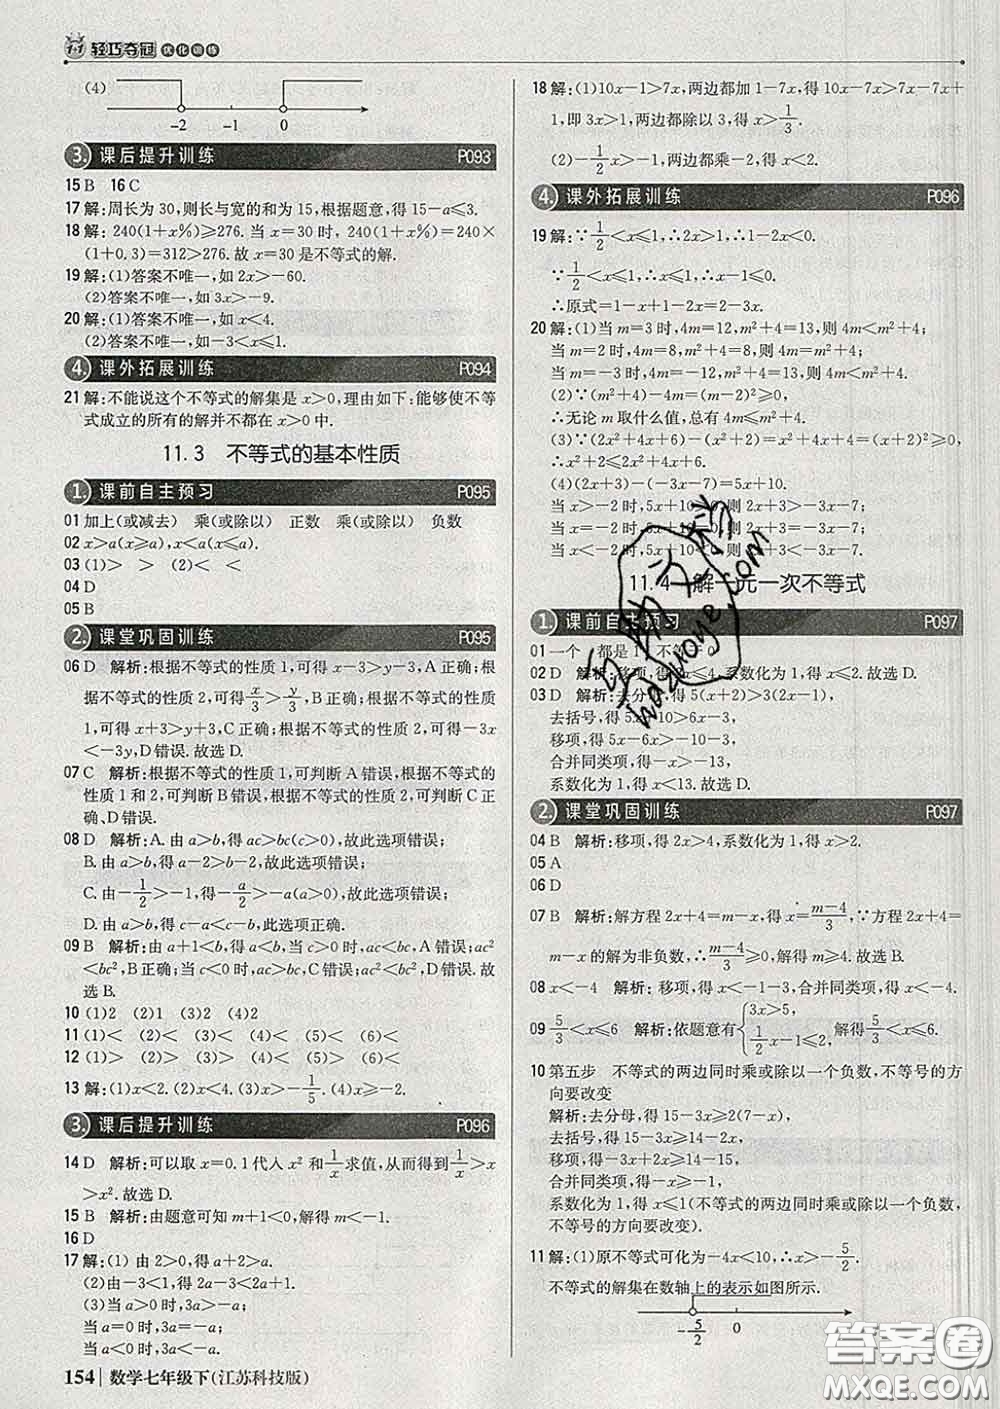 1+1 轻巧夺冠 优化训练
(4)
-2 -1 0
3. 课后提升训练 P093
15 B 16 C
17 解:周长为 30,则长与宽的和为 15,根据题意,得 15-a≤3.
18 解:240(1+x%)≥276. 当 x=30 时, 240(1+x%)=240×
(1+0.3)=312>276. 故 x=30 是不等式的解.
19 解:(1)答案不唯一,如 2x>-60.
(2)答案不唯一,如 3x>-9.
20 解:(1)答案不唯一,如 x<4.
(2)答案不唯一,如-3<x≤1.
4. 课外拓展训练 P094
21 解:不能说这个不等式的解集是 x>0,理由如下:能够使不等
式成立的所有的解并不都在 x>0 中.
11.3 不等式的基本性质
1. 课前自主预习 P095
01 加上(或减去) 乘(或除以) 正数 乘(或除以) 负数
02 x>a(x≥a),x<a(x≤a).
03 (1)> > (2)< <
04 D
05 B
2. 课堂巩固训练 P095
06 D 解析:根据不等式的性质 1,可得 x-3>y-3,A 正确;根
据不等式的性质 2,可得 x/3>y/3,B 正确;根据不等式的性质
1,可得 x+3>y+3,C 正确;根据不等式的性质 2,可得-3x
<-3y,D 错误.故选 D.
07 C 解析:根据不等式的性质 1,可判断 A 错误,根据不等式的
性质 1 和 2,可判断 B 错误,根据不等式的性质 2,可判断 C 正
确、D 错误.
08 D 解析:A. 由 a>b,得 ac>bc(c>0),故此选项错误;
B. 由 a>b,得 a-2>b-2,故此选项错误;
C. 由-1/2>-1,得-a/2>-a(a>0),故此选项错误;
D. 由 a>b,得 c-a<c-b,此选项正确.
09 B 解析:由 a+1<b,得 a<b,当 c>0 时,ac<bc,A 错误;ac²
<bc²,B 正确;当 c<0 时,ac>bc,C 错误;ac²<bc²,D 错误.故
选 B.
10 (1)2 (2)1 (3)2 (4)2
11 (1)< (2)< (3)< (4)> (5)> (6)<
12 (1)> (2)> (3)< (4)> (5)< (6)<
13 解:(1)x<2. (2)x<4. (3)x>-1/5. (4)x≥-2.
3. 课后提升训练 P096
14 D 解析:可以取 x=0.1 代入 x² 和 1/x 求值,从而得到 1/x>x
>x². 故选 D.
15 B 解析:由题意可知 m+1<0,解得 m<-1.
16 D
17 解:(1) 由 2>0,得 a+2>a;
(2)由-3<1,得 2a-3<2a+1.
(3)当 a>0 时,3a>-a;
当 a=0 时,3a=-a;
当 a<0 时,3a<-a.
154 数学七年级下(江苏科技版)
18 解:(1)10x-1>7x,两边都加 1-7x,得 10x-7x>7x-7x+
1,即 3x>1,两边都除以 3,得 x>1/3.
(2)-1/2x>1,两边都乘-2,得 x<-2.
4. 课外拓展训练 P096
19 解:∵1/2<x≤1,∴2x>1,∴1-2x<0.
∵1/2<x≤1,∴1-x≥0.
∴原式=1-x+1-2x=2-3x.
20 解:(1)当 m=3 时,4m=12,m²+4=13,则 4m<m²+4;
当 m=2 时,4m=8,m²+4=8,则 4m=m²+4;
当 m=-3 时,4m=-12,m²+4=13,则 4m<m²+4.
(2)∵(m²+4)-4m=(m-2)²≥0,
∴无论 m 取什么值,总有 4m≤m²+4.
(3)∵(2x²+4x+6)-(x²+2)=x²+4x+4=(x+2)²≥0,
∴x²+2≤2x²+4x+6.
(4)(2x+3)-(-3x-7)=5x+10.
当 x>-2 时,5x+10>0,则 2x+3>-3x-7;
当 x=-2 时,5x+10=0,则 2x+3=-3x-7;
当 x<-2 时,5x+10<0,则 2x+3<-3x-7.
11.4 解一元一次不等式
1. 课前自主预习 P097
01 一个 都是 1 不等于 0
02 D 解析:移项,得 2x≤4,系数化为 1,得 x≤2. 故选 D.
03 D 解析:去分母,得 5(x+2)>3(2x-1),
去括号,得 5x+10>6x-3,
移项,得 5x-6x>-10-3,
合并同类项,得-x>-13,
系数化为 1,得 x<13. 故选 D.
2. 课堂巩固训练 P097
04 B 解析:移项,得 2x>4,系数化为 1,得 x>2.
05 A
06 D
07 B 解析:解方程 2x+4=m-x,得 x=(m-4)/3,∵方程 2x+4=
m-x 的解为非负数,∴(m-4)/3≥0,解得 m≥4. 故选 B.
08 x<-4 解析:移项,得 x<-1-3,合并同类项,得 x<-4.
09 5/3<x≤6 解析:依题意有{3x>5, 1/2x-1≤2, 解得5/3<x≤6.
10 第五步 不等式的两边同时乘或除以一个负数,不等号的方
向要改变
解析:去分母,得 15-3x≥2(7-x),
去括号,得 15-3x≥14-2x,
移项,得-3x+2x≥14-15,
合并同类项,得-x≥-1,
系数化为 1,得 x≤1(不等式的两边同时乘或除以一个负数,
不等号的方向要改变).
11 解:(1)原不等式可化为-4x<10,∴x>-5/2.
不等式的解集在数轴上的表示如图所示.
-5/2 0
hdzuoye.com
答案圈
MXQE.COM